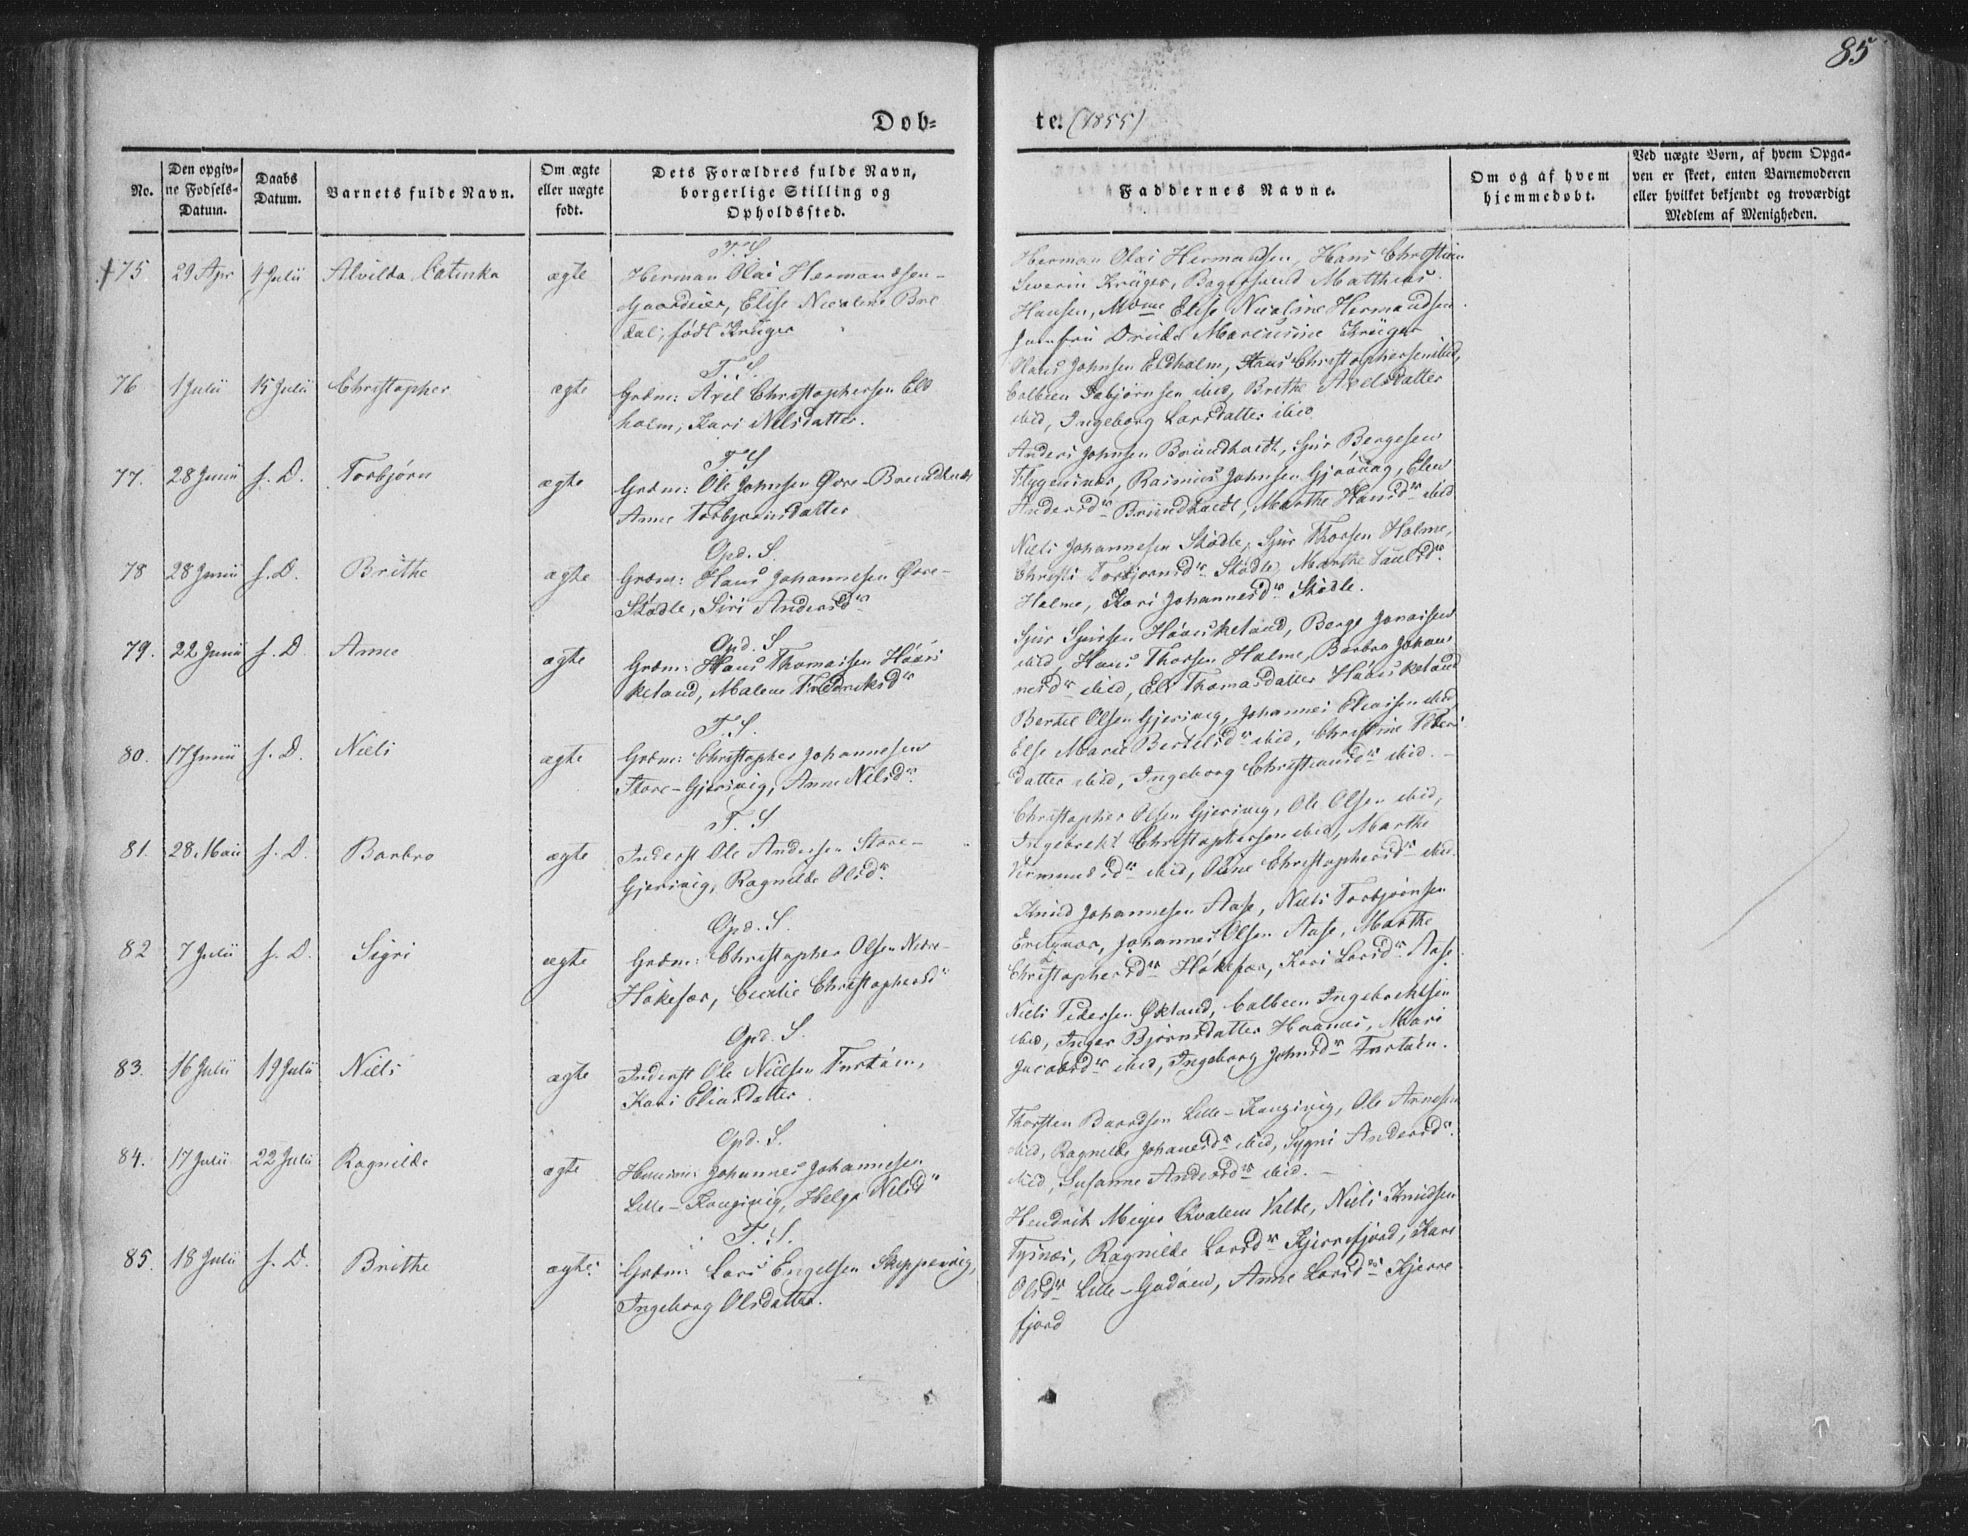 85
Døb-
te. (1855)
No.
Den opgiv-
ne Fødsels-
Datum.
Daabs
Datum.
Barnets fulde Navn.
Om ægte
eller uægte
født.
Dets Forældres fulde Navn,
borgerlige Stilling og
Opholdssted.
Faddernes Navne.
Om og af hvem
hjemmedøbt.
Ved uægte Born, af hvem Opga-
ven er skeet, enten Barnemoderen
eller hvilket bekjendt og troværdigt
Medlem af Menigheden.
T. S.
75 29 Apr 4 Julii Alvilda Catinka ægte Herman Olai Hermandsen
Gaardeier, Elise Nicoline Bre
dal; født Krüger
Herman Olai Hermandsen, Hans Christian
Severin Krüger, Matthias
Hansen, Mme Elise Nicoline Hermandsen
Jomfru Marcusine Krüger
T. S.
76 1 Julii 15 Julii Christopher ægte Grdm: Axel Christophersen Eld
holm, Kari Nelsdatter.
Hans Johnsen Eldholm, Hans Christophersen ibid,
ibid, Brithe Axelsdatter
ibid, Ingeborg Larsdatter ibid
T. S
77. 28 Junii s. D. Torbjørn ægte Grdm: Ole Johnsen Øvre-
Anne Torbjørnsdatter
Anders Johnsen Sjur Børgesen
Rasmus Johnsen Gjøvaag, Elen
Andersdr Marthe Hansdr ibid
Opd. S.
78 28 Junii s. D. Brithe ægte Grdm: Hans Johannesen Øvre-
Skødle, Siri Andersdr
Niels Johannesen Skødle, Sjur Thorsen Holme,
Christi Torbjørnsdr Skødle, Marthe Paulsdr
Holme, Kari Johannesdr Skødle.
Opd. S
79. 22 Junii s. D. Anne ægte Grdm: Hans Thomassen Haavs
keland, Malene Fredriksdr
Sjur Sjursen Haavskeland, Børge Jonassen
ibid, Hans Thorsen Holme, Barbro Johan
nesdr ibid, Eli Thomasdatter Haavskeland
T. S.
80. 17 Junii s. D. Niels ægte Grdm: Christopher Johannesen
Store-Gjersvig, Anne Nilsdr
Bertel Olsen Gjersvig, Johannes Eliassen ibid
Else Marie Bertelsdr ibid, Christine Peders
datter ibid, Ingeborg Christiansdr ibid.
T. S.
81. 28. Maii s. D. Barbro ægte Inderst Ole Andersen Store-
Gjersvig, Ragnilde Olsdr
Christopher Olsen Gjersvig, Ole Olsen ibid,
Ingebrekt Christophersen ibid, Marthe
ibid, Oline Christophersdr ibid.
Opd. S.
82 7 Julii s. D. Sigri ægte Grdm: Christopher Olsen Nedre-
Hökefær, Cicilie Christophersd
Knud Johannesen Aase, Niels Torbjørnsen
Johannes Olsen Aase, Marthe
Christophersdr Hökefær, Kari Larsdr Aase
Opd. S.
83. 16 Julii 19 Julii Niels ægte Inderst Ole Nielsen
Kari Eliasdatter
Niels Pedersen Økland, Colbeen Ingebrektsen
ibid, Inger Bjørnsdatter Haanæs, Mari
Jacobsdr ibid, Ingeborg Johnsdr
Opd. S.
84. 17 Julii 22 Julii Ragnilde ægte Johannes Johannesen
Lille-Kongsvig, Helga Nilsdr
Thorsten Baardsen Lille-Kongsvig, Ole Arnesen
ibid, Ragnilde Johanesdr ibid, Sygni Andersdr
ibid, Susanne Andersdr ibid.
T. S.
85. 18 Julii s. D. Brithe ægte Grdm: Lars Engelsen Skippervig,
Ingeborg Olsdatter.
Hendrik Meyer Niels Knudsen
Tysnæs, Ragnilde Larsdr Kjerrefjord, Kari
Olsdr Lille-Godøen, Anne Larsdr Kjerre
fjord